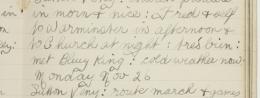 in morn & nice: I red & self
to Warminster in afternoon &
to Church at night: tres bien:
met Beng King: cold weather now:
Monday Nov 26
Sutton Veny: route march & games